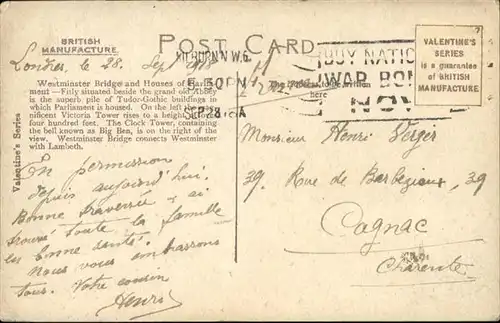 BRITISH
MANUFACTURE
POST CARD
VALENTINE'S
SERIES
is a guarantee
of BRITISH
MANUFACTURE
KILBURN N.W.6.
SP 28 18 A
BUY NATIO
WAR BON
NOW
here
Londres, le 28. Sep 1918
Westminster Bridge and Houses of Parlia-
ment—Fitly situated beside the grand old Abbey
is the superb pile of Tudor-Gothic buildings in
which Parliament is housed. On the left the mag-
nificent Victoria Tower rises to a height of over
four hundred feet. The Clock Tower, containing
the bell known as Big Ben, is on the right of the
view. Westminster Bridge connects Westminster
with Lambeth.
Valentine's Series
En permission
depuis aujourd'hui.
Bonne traversée & ai
trouvé toute la famille
en bonne santé.
Nous vous embrassons
tous. Votre cousin
Henri
Monsieur Henri Verger
39. Rue de Barbezieux, 39
Cognac
Charente